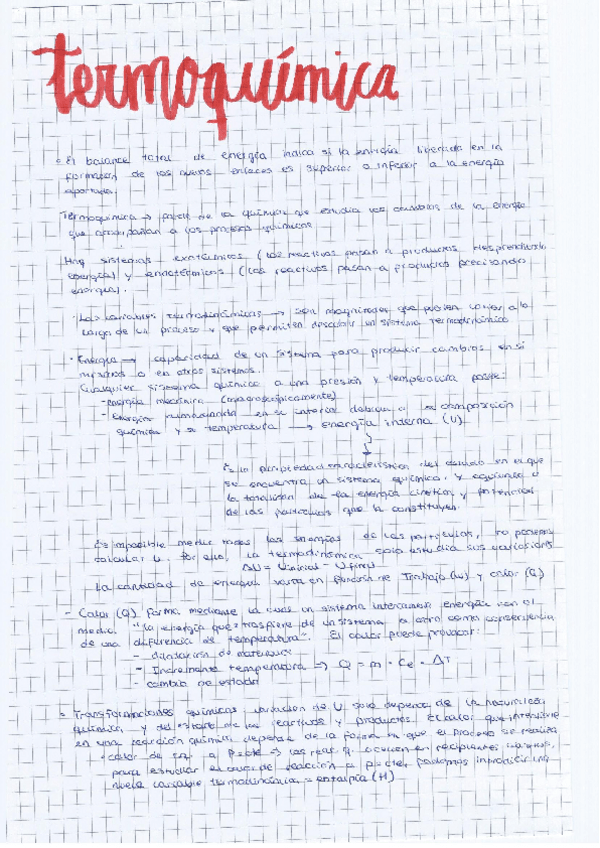 termoquímica
El balance total de energía indica si la energía liberada en la
formación de los nuevos enlaces es superior o inferior a la energía
aportada.
Termoquímica → parte de la química que estudia los cambios de la energía
que acompañan a los procesos químicos
Hay sistemas exotérmicos (los reactivos pasan a productos desprendiendo
energía) y endotérmicos (los reactivos pasan a productos precisando
energía).
Las variables termodinámicas → son magnitudes que pueden variar a lo
largo de un proceso y que permiten describir un sistema termodinámico
Energía → capacidad de un sistema para producir cambios en si
mismos o en otros sistemas.
Cualquier sistema químico a una presión y temperatura posee:
- energía mecánica (macroscópicamente)
- Energía almacenada en su interior debida a su composición
química y su temperatura → energía interna (U)
Es la propiedad característica del estado en el que
se encuentra un sistema químico, y equivale a
la totalidad de la energía cinética y potencial
de las partículas que la constituyen.
Es imposible medir todas las energías de las partículas, no podemos
calcular U. Por ello, la termodinámica solo estudia sus variaciones
ΔU = Uinicial - Ufinal
La cantidad de energía varía en función de Trabajo (W) y calor (Q)
- Calor (Q) forma mediante la cual un sistema intercambia energía con el
medio. "La energía que traspiere de un sistema a otro como consecuencia
de una diferencia de temperatura". El calor puede provocar:
- dilatación de materiales
- Incremento temperatura → Q = m · Ce · ΔT
- cambio de estado
Transformaciones químicas variación de U solo depende de la naturaleza
química, y del estado de los reactivos y productos. El calor que interviene
en una reacción química depende de la forma en que el proceso se realiza
calor de a P=cte → las reac. q. ocurren en recipientes
para estudiar el calor de reacción a p=cte, podemos introducir una
nueva variable termodinámica = entalpía (H)